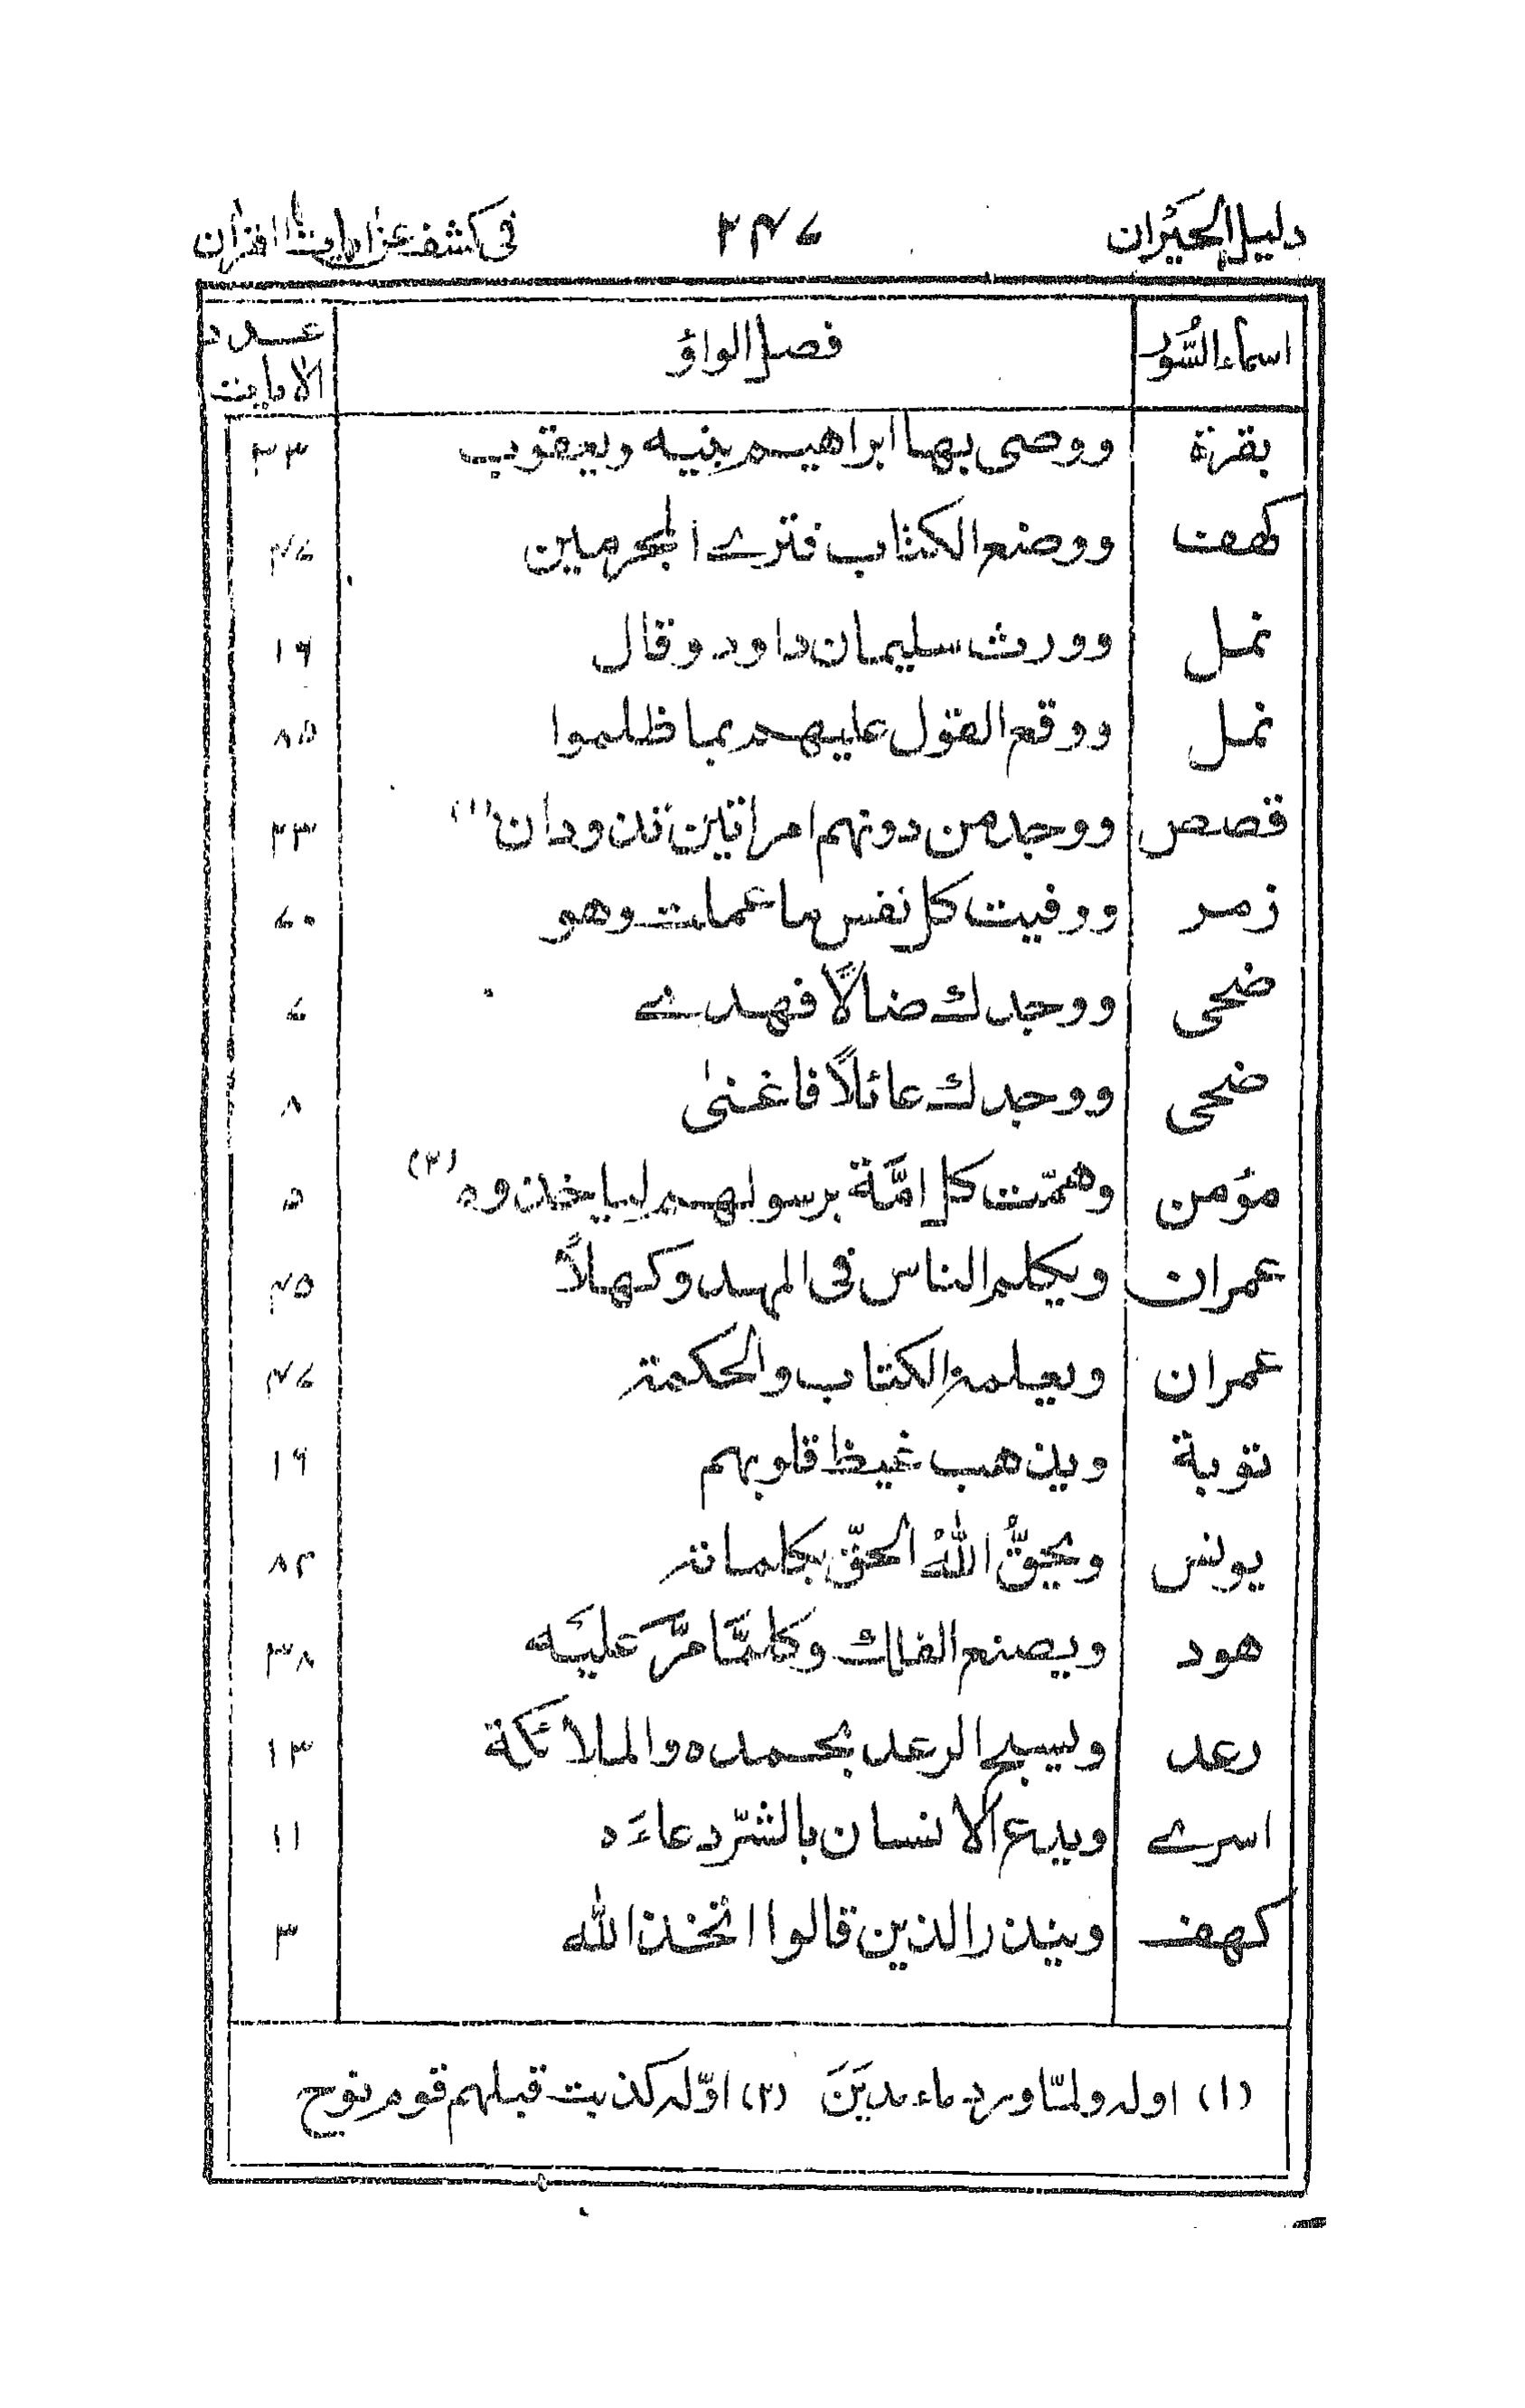 دليل الحيران ٢٤٧ في كشف عن ايات القران
اسماء السُّور فصل الواؤ عدد الايات
بقرة ووصى بها ابراهيم بنيه ويعقوب ٣٣
كهف ووضع الكتاب فترے المجرمين ٤٧
نمل وورث سليمان داود وقال ١٦
نمل ووقع القول عليهم بما ظلموا ٨٥
قصص ووجد من دونهم امراتين تذودان (١) ٢٣
زمر ووفيت كل نفس ما عملت وهو ٧٠
ضحى ووجدك ضالاً فهدے ٧
ضحى ووجدك عائلاً فاغنىٰ ٨
مؤمن وهمّت كل امَّة برسولهم لياخذوه (٢) ٥
عمران ويكلم الناس فى المهد وكهلاً ٤٥
عمران ويعلمه الكتاب والحكمة ٤٧
توبة ويذهب غيظ قلوبهم ١٦
يونس ويحقُّ اللّٰهُ الحقّ بكلماته ٨٢
هود ويصنع الفلك وكلمَّا مرَّ عليَه ٣٨
رعد ويسبح الرعد بحمده والملائكة ١٣
اسرے ويدع الانسان بالشرّ دعاءَه ١١
كهف وينذر الذين قالوا اتخذ اللّٰه ٣
(١) اوله ولمّا ورد ماء مديَنَ (٢) اوّله كذبت قبلهم قوم نوح